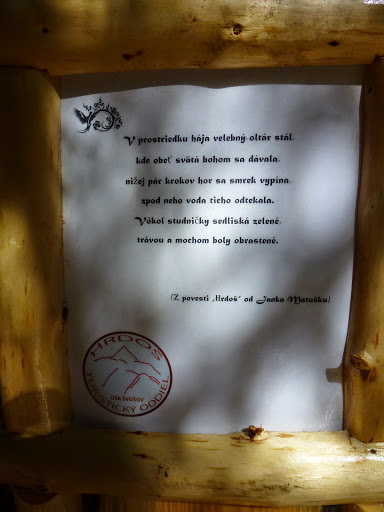 V prostriedku hája velebný oltár stál,
kde obeť svätá bohom sa dávala,
nižej pár krokov hor sa smrek vypína,
zpod neho voda ticho odtekala.
Vôkol studničky sedliská zelené,
trávou a mochom boly obrastené.
(Z povesti „Hrdoš" od Janka Matúšku)
HRDOŠ
OŠK ŠVOŠOV
TURISTICKÝ ODDIEL